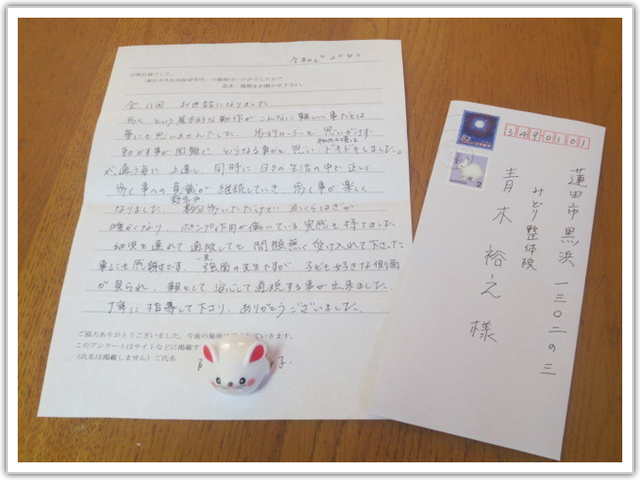 お疲れ様でした。
見本、感想をお聞かせ下さい。
全11回 お世話になりました。
歩くという基本的な動作がこんなに難しい事だとは
夢にも思いませんでした。
動かす事が困難で、どうなる事かと思い ドキドキしました。
が、通う毎に上達し、同時に日々の生活の中で、正しく
歩く事への意識が継続していき、歩く事が楽しく
なりました。数分歩いただけで ふくらはぎが
暖かくなり、ポンプ作用が働いている実感も持てました。
幼児を連れて通院しても問題無く受け入れて下さった
事にも感謝です。強面の先生ですが、子ども好きな側面
が見られ、親として安心して通院する事が出来ました。
丁寧に指導して下さり、ありがとうございました。
ご協力ありがとうございました。今後の施術に
ていきます。
このアンケートはサイトなどに掲載す
(氏名は掲載しません)ご氏名
52
2
3490101
蓮田市黒浜一三〇二の三
みどり整体院
青木裕之様